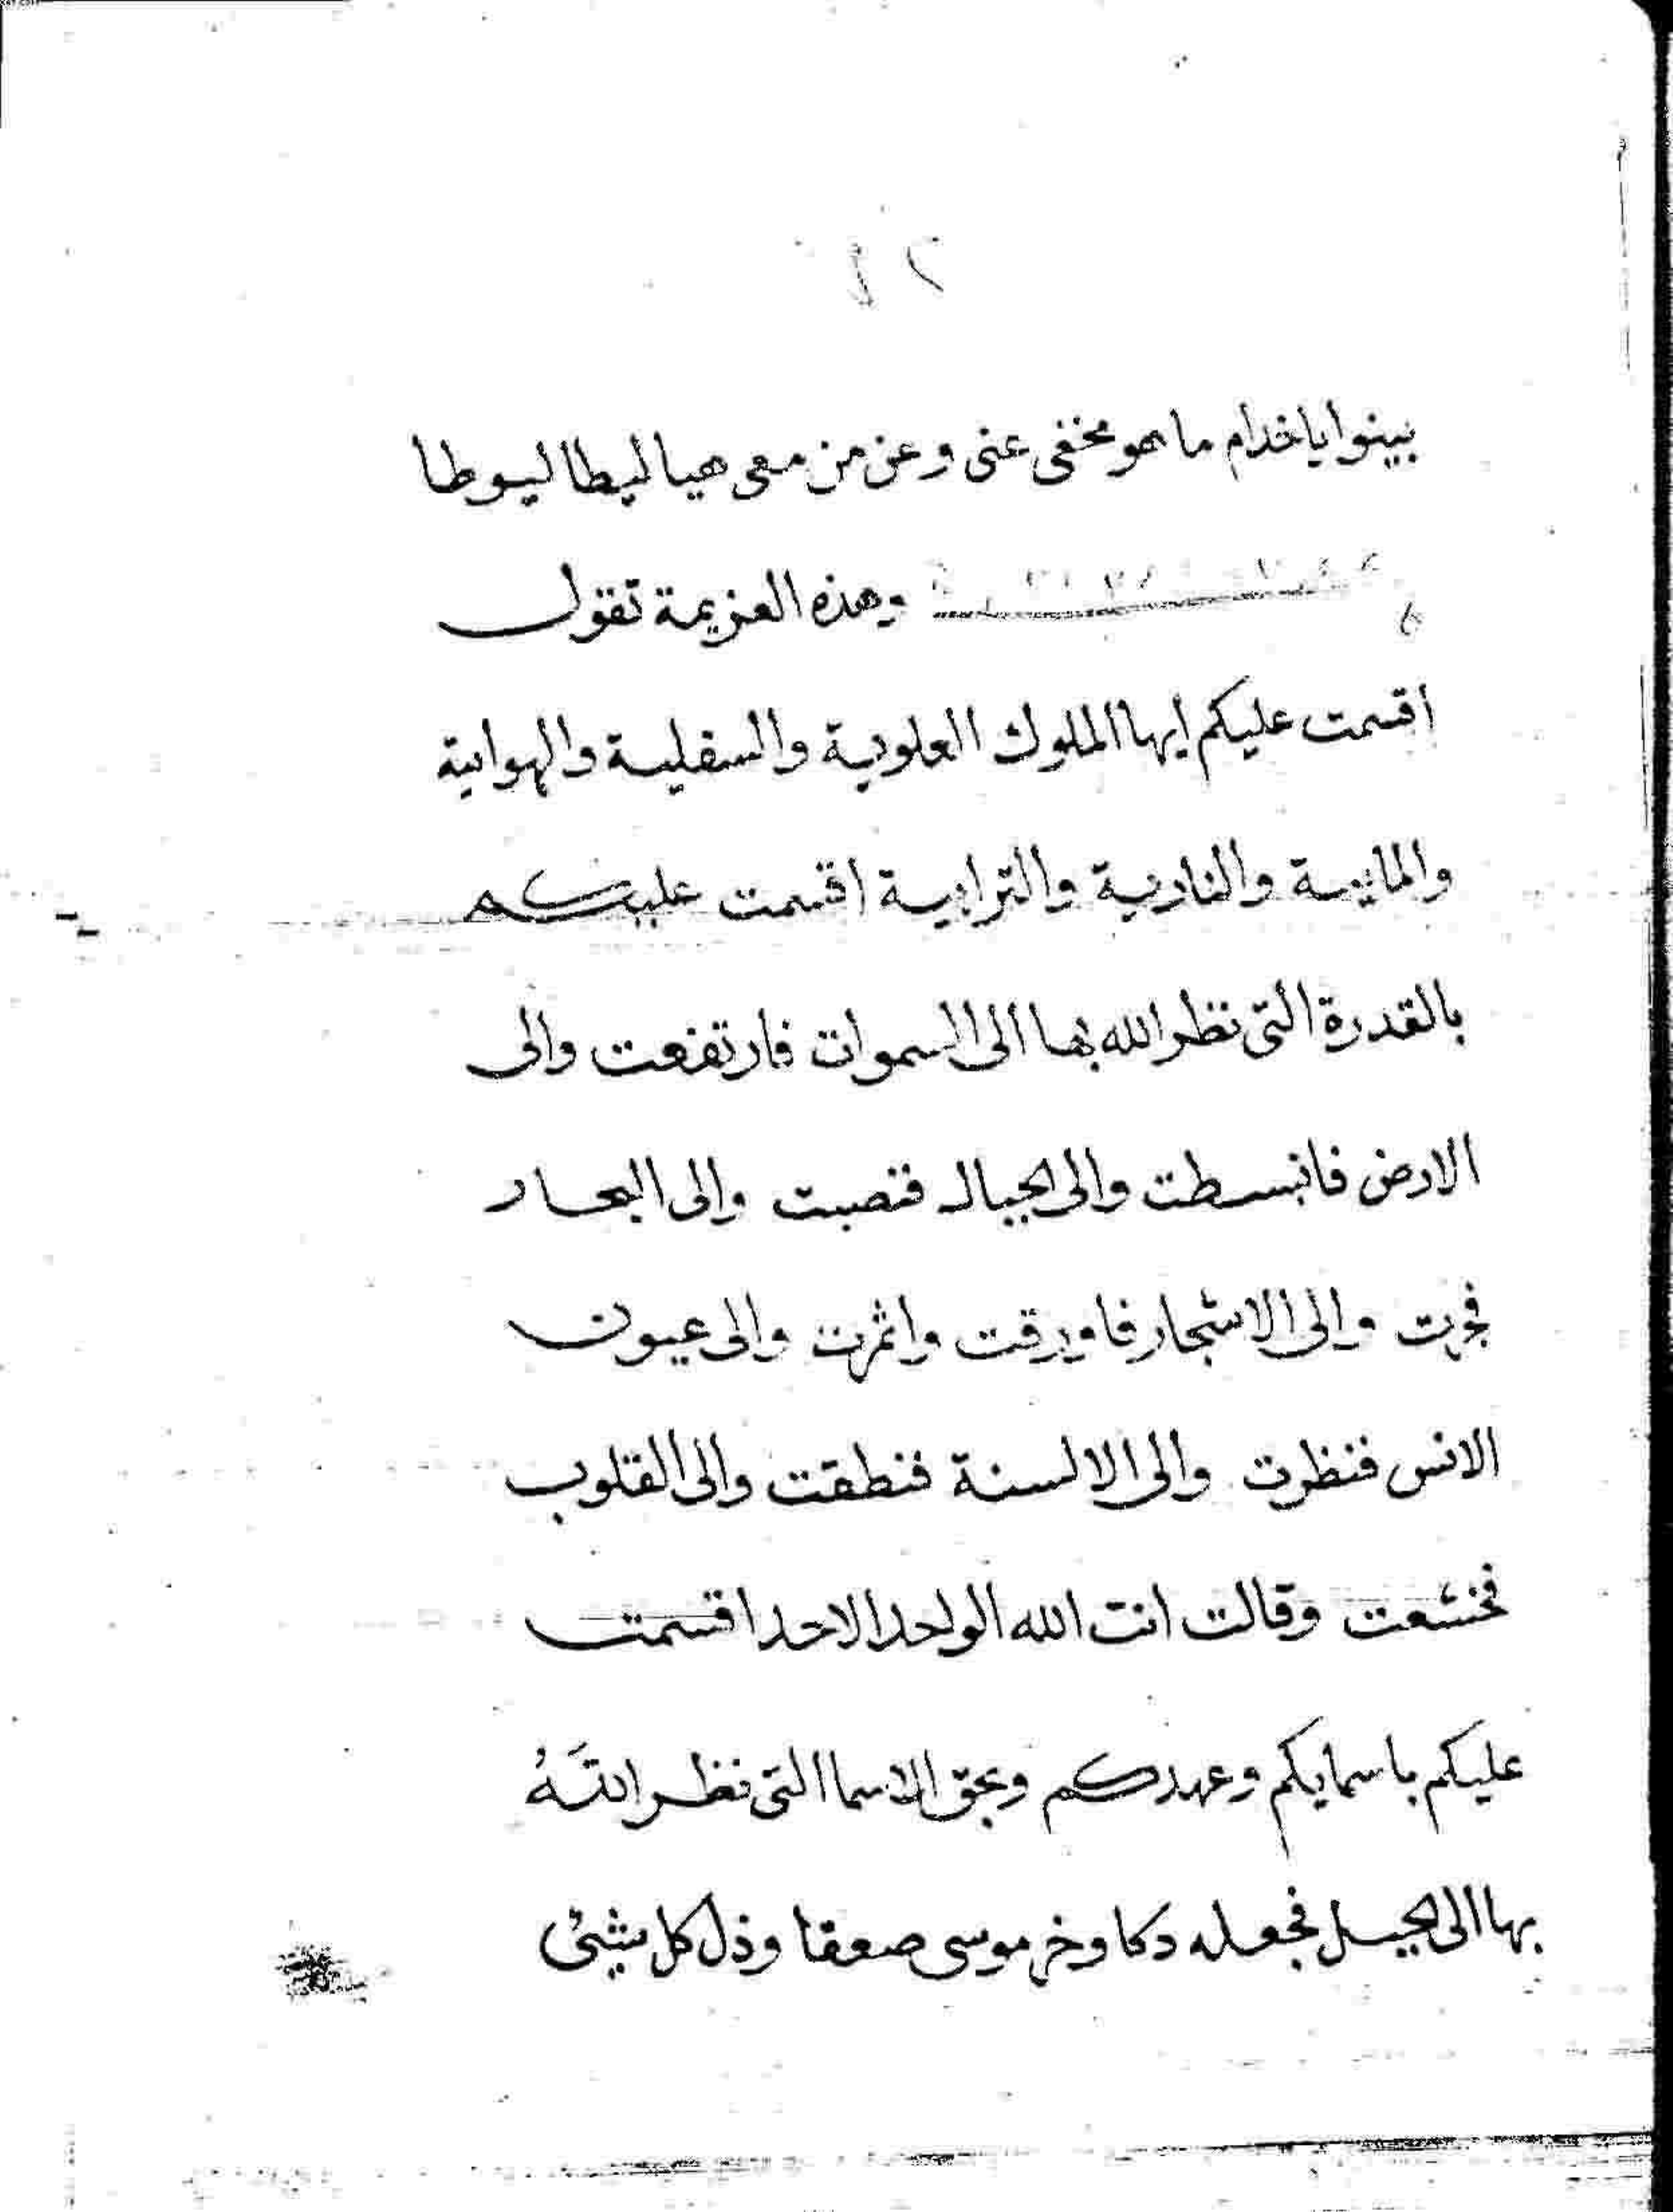 بينوا ياخدام ما هو مخفى عنى وعن من معى هيا ليطا ليوطا
وهذه العزيمة تقول
اقسمت عليكم ايها الملوك العلوية والسفلية والهوايية
والماييسة والنارية والترابية اقسمت عليكم
بالقدرة التى نظر الله بها الى السموات فارتفعت والى
الارض فانبسطت والى الجبال فنصبت والى البحار
فجرت والى الاشجار فاورقت واثمرت والى عيون
الانس فنظرت والى الالسنة فنطقت والى القلوب
فخشعت وقالت انت الله الواحد الاحد اقسمت
عليكم باسمايكم وعهدكم وبحق الاسما التى نظر اللَّهُ
بها الى الجبل فجعله دكا وخر موسى صعقا وذل كل شيئ